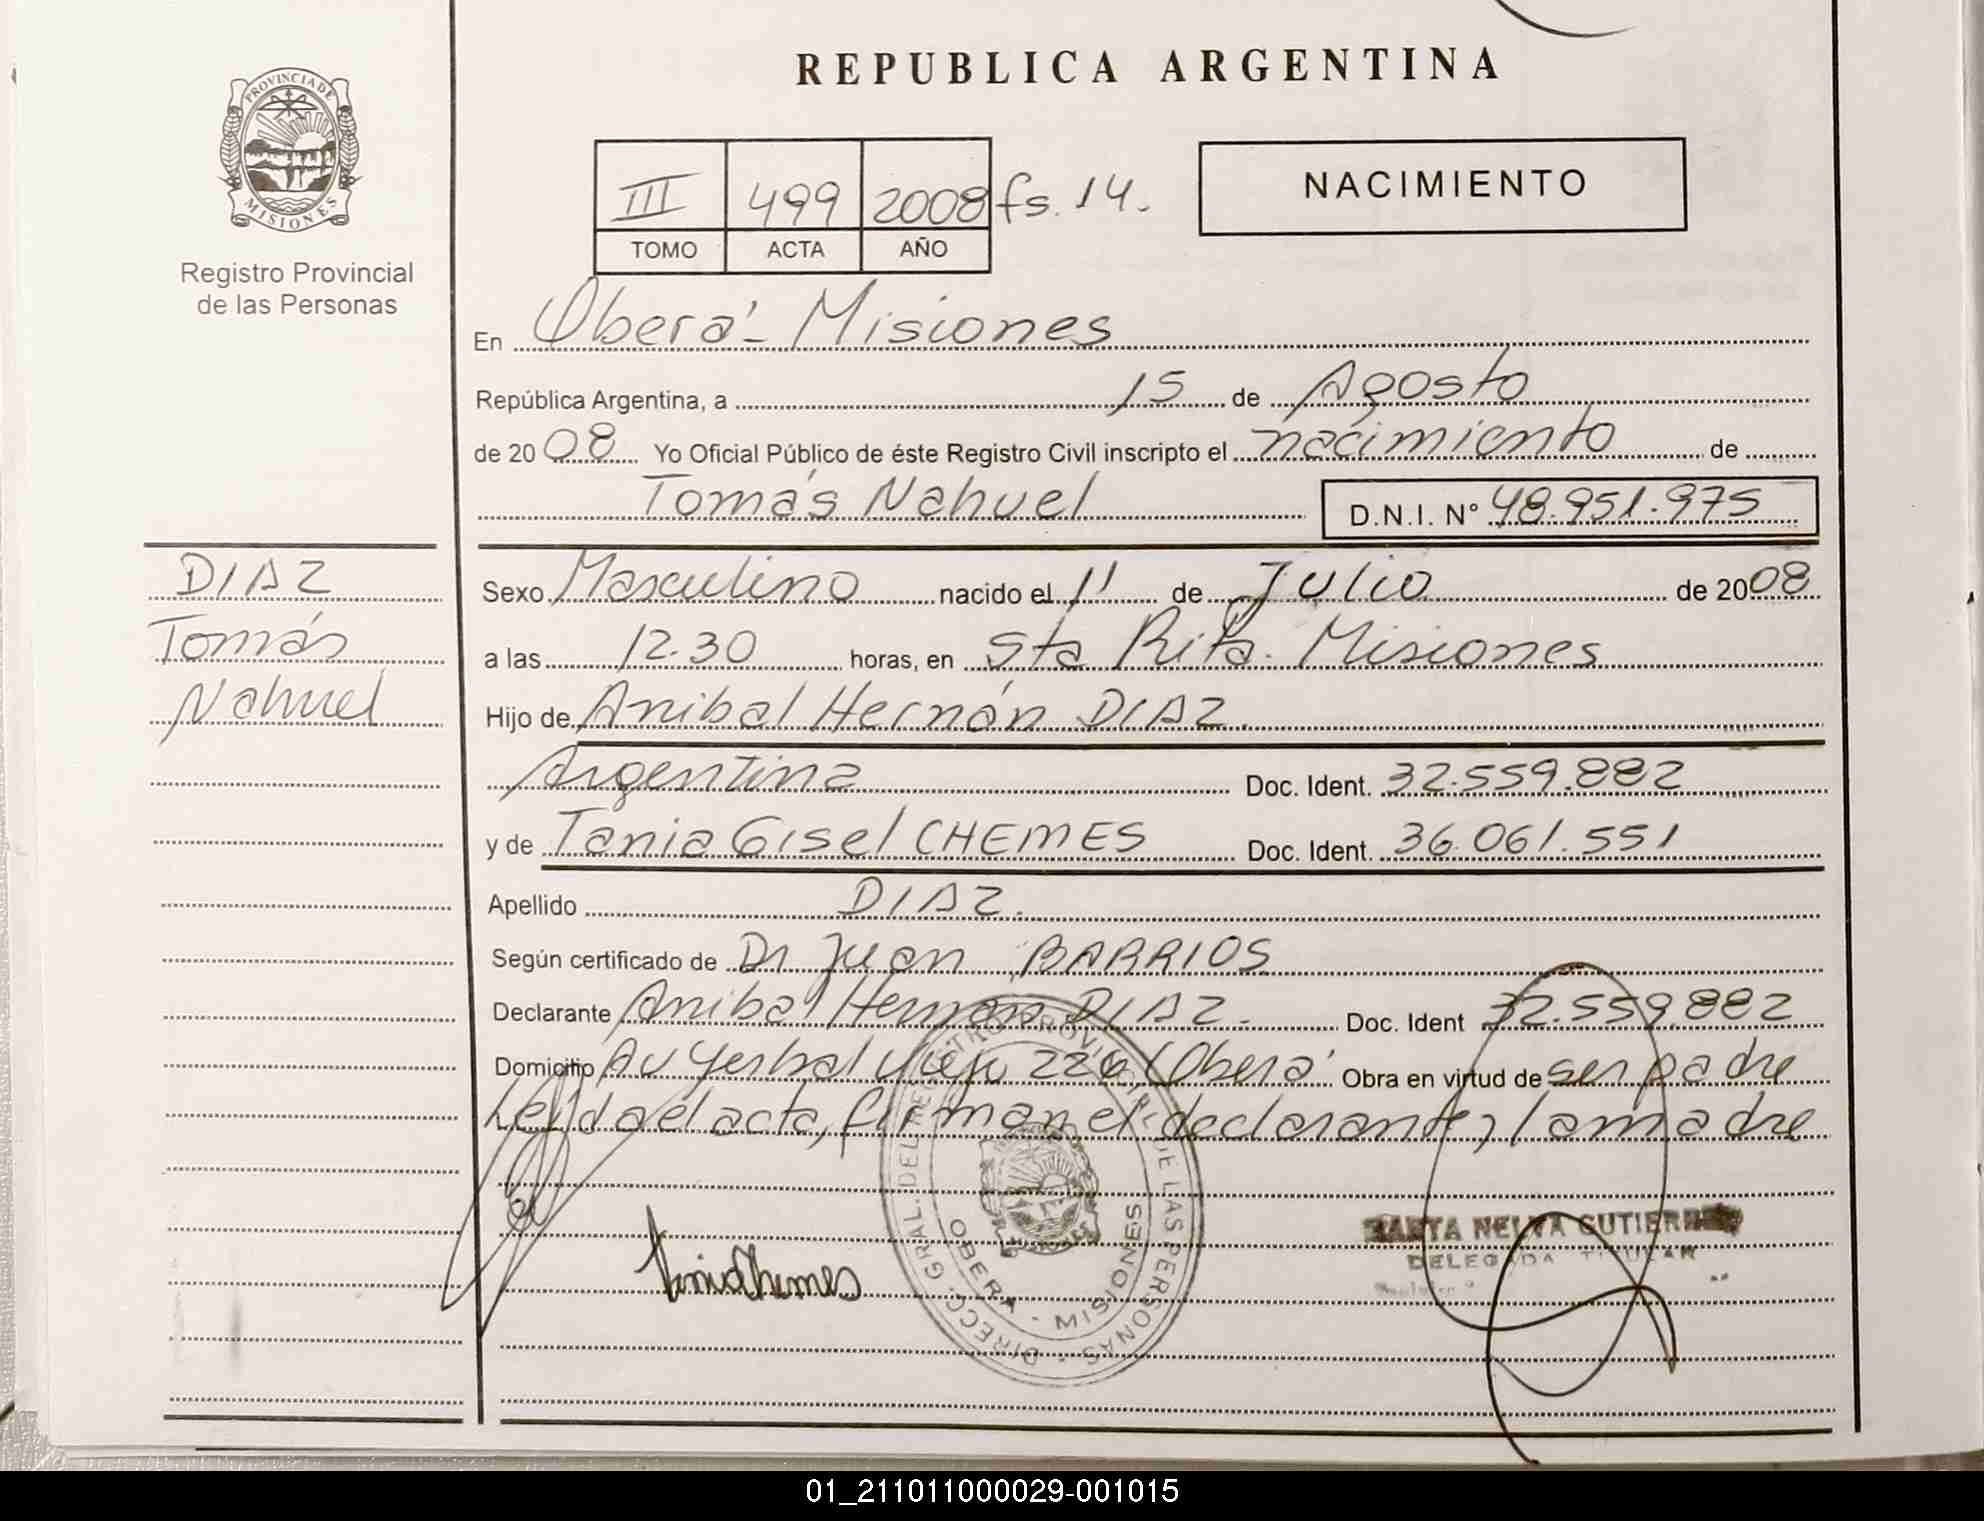 REPUBLICA ARGENTINA
PROVINCIA DE MISIONES
Registro Provincial
de las Personas
III 499 2008 fs. 14.
TOMO ACTA AÑO
NACIMIENTO
En Oberá - Misiones
República Argentina, a 15 de Agosto
de 2008 Yo Oficial Público de éste Registro Civil inscripto el nacimiento de
Tomás Nahuel D.N.I. N° 48.951.975
DIAZ
Tomás
Nahuel
Sexo Masculino nacido el 11 de Julio de 2008
a las 12.30 horas, en Sta Rita. Misiones
Hijo de Anibal Hernán DIAZ.
Argentina Doc. Ident. 32.559.882
y de Tania Gisel CHEMES Doc. Ident. 36.061.551
Apellido DIAZ.
Según certificado de Dr Juan BARRIOS
Declarante Anibal Hernan DIAZ. Doc. Ident 32.559.882
Domicilio Av Yerbal Viejo 226, Oberá Obra en virtud de ser padre
Leída el acta, firman el declarante y la madre
DIRECC. GRAL. DEL REGISTRO PROVINCIAL DE LAS PERSONAS
OBERA - MISIONES
NELVA GUTIERREZ
DELEGADA TITULAR
01_211011000029-001015